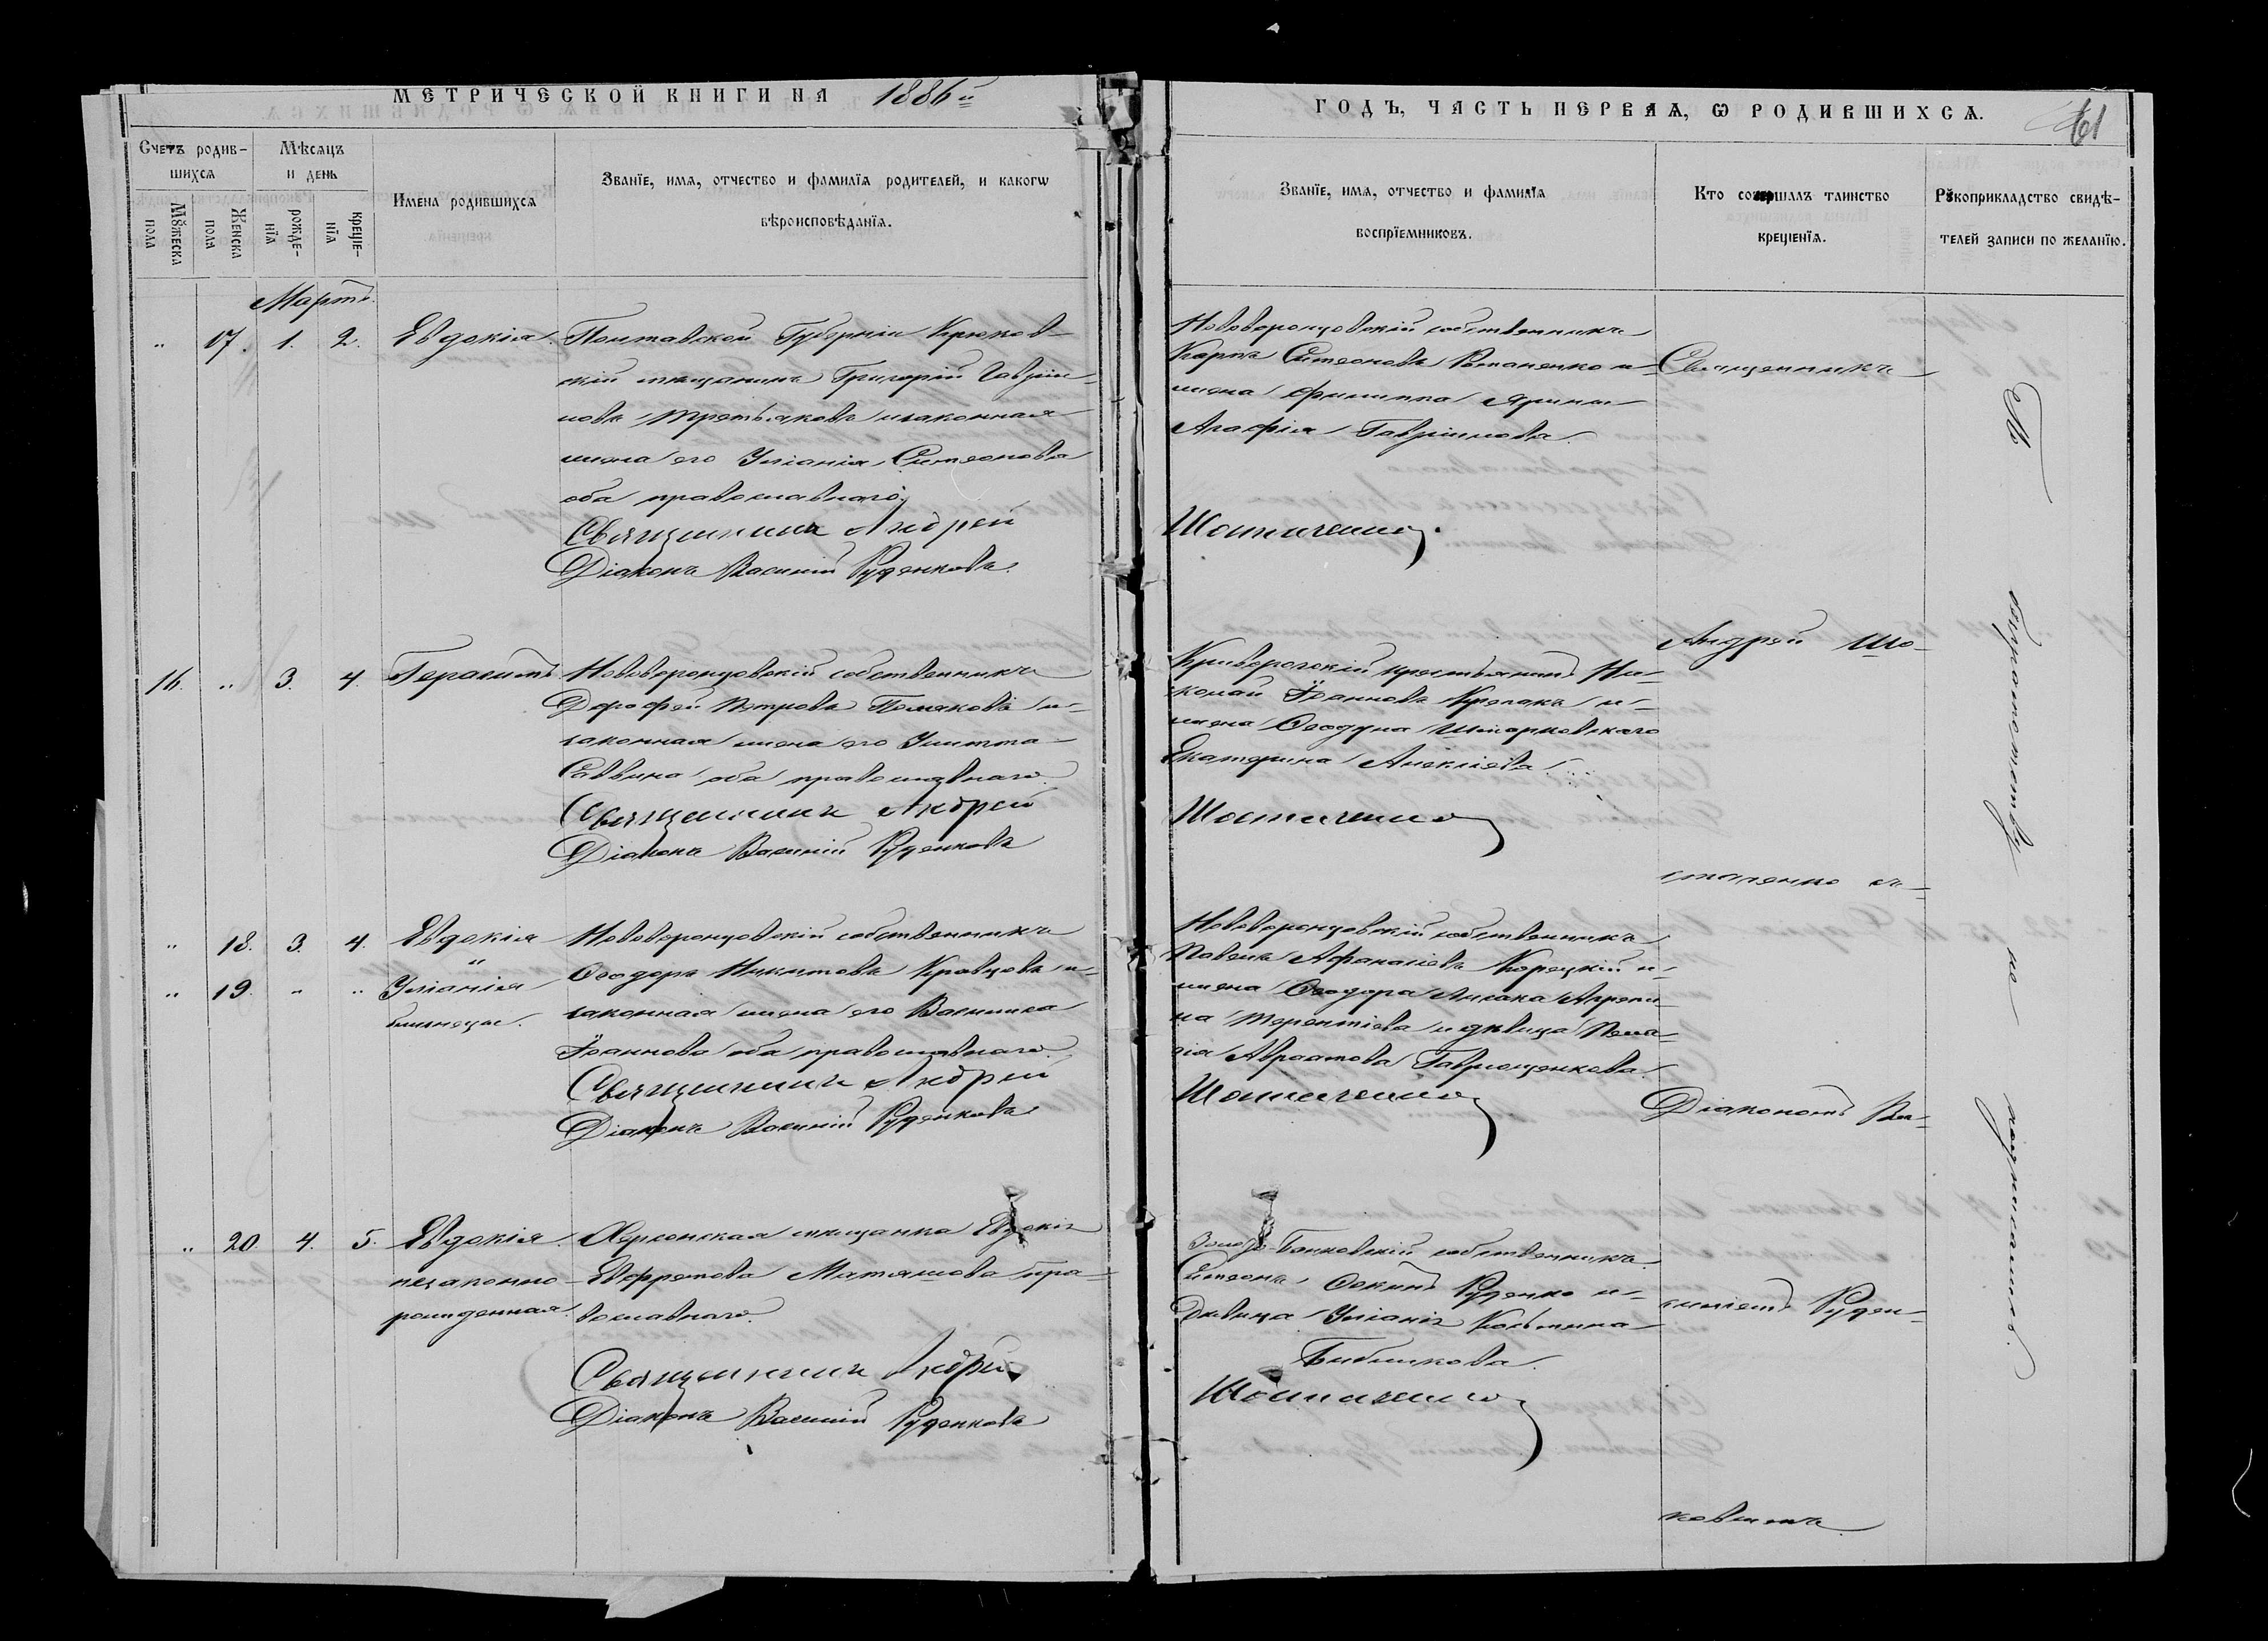 МЕТРИЧЕСКОЙ КНИГИ НА 1886й
ГОДЪ, ЧАСТЬ ПЕРВАѦ, Ѡ РОДИВШИХСѦ.
61
Счетъ родив-
шихсѧ
Мѣсѧцъ
и день
Мꙋжеска
пола
Женска
пола
рожде-
нїѧ
креще-
нїѧ
Имена родившихсѧ
Званїе, имѧ, отчество и фамилїѧ родителей, и какогѡ
вѣроисповѣданїѧ.
Званїе, имѧ, отчество и фамилїѧ
воспрїемниковъ.
Кто совершалъ таинство
крещенїѧ.
Рꙋкоприкладство свидѣ-
телей записи по желанїю.
Мартъ.
" 17. 1. 2. Евдокія.
Полтавской Губерніи Крюков-
скій мѣщанинъ Григорій Гаврїи-
ловъ Третьяковъ и законная
жена его Уліанія Симеонова
оба православнаго.
Священникъ Андрей
Діаконъ Василій Руденковъ.
Нововоронцовскій собственникъ
Карпъ Симеоновъ Романенко и
жена Филиппа
Агафія Гавріилова.
Шостаченко.
Священникъ
16. " 3. 4. Герасимъ
Нововоронцовскій собственникъ
Дорофей Петровъ Поляковъ и
законная жена его Улитта
Саввина оба православнаго.
Священникъ Андрей
Діаконъ Василій Руденковъ
Криворогскій крестьянинъ Ни-
колай Іоанновъ и
жена Ѳеодула
Екатерина Алексіева.
Шостаченко
Андрей Шо-
стаченко съ
" 18. 3. 4. Евдокія
" 19. " " Уліанія
близнецы.
Нововоронцовскій собственникъ
Ѳеодоръ Никитовъ Кравцовъ и
законная жена его Василиса
Іоаннова оба православнаго.
Священникъ Андрей
Діаконъ Василій Руденковъ
Нововоронцовскій собственникъ
Павелъ Афанасіевъ Корецкій и
жена Ѳеодора Лисака Агрепи-
на Терентіева и дѣвица Пела-
гія Авраамова Гаврющенкова.
Шостаченко
Діакономъ Ва-
" 20. 4. 5. Евдокія
незаконно-
рожденная.
Херсонская мѣщанка Евдокія
Евфремова Матяшова пра-
вославнаго.
Священникъ Андрей
Діаконъ Василій Руденковъ
Золото-Балковскій собственникъ
Симеонъ Руденко и
Дѣвица Уліанія Козьмина
Бибикова.
Шостаченко
силіемъ Руден-
ковымъ.